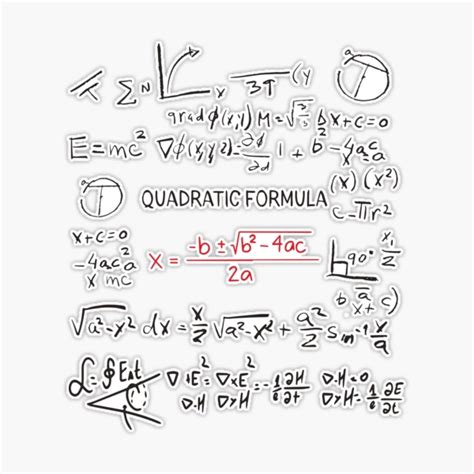 Σ N X 3π (y a
grad φ(x,y) M = √3/3 bx+c=0
E=mc² ∇φ(x,y,z) = ∂d/∂d 1 + b²-4ac/x=a
(x) (x²)
QUADRATIC FORMULA
c-πr²
x+c=0
-4ac²a
x mc
X = -b ± √b² - 4ac / 2a
90° x 1/2
b a/x + c)
√a²-x² dx = x/2 √a²-x² + a²/2 sin⁻¹ x/a
L=∮E∆t ∇×E²=∇×E²=-1/c ∂H/∂t ∇.H=0
∇.H ∇×H ∇×H=1/c ∂E/∂t